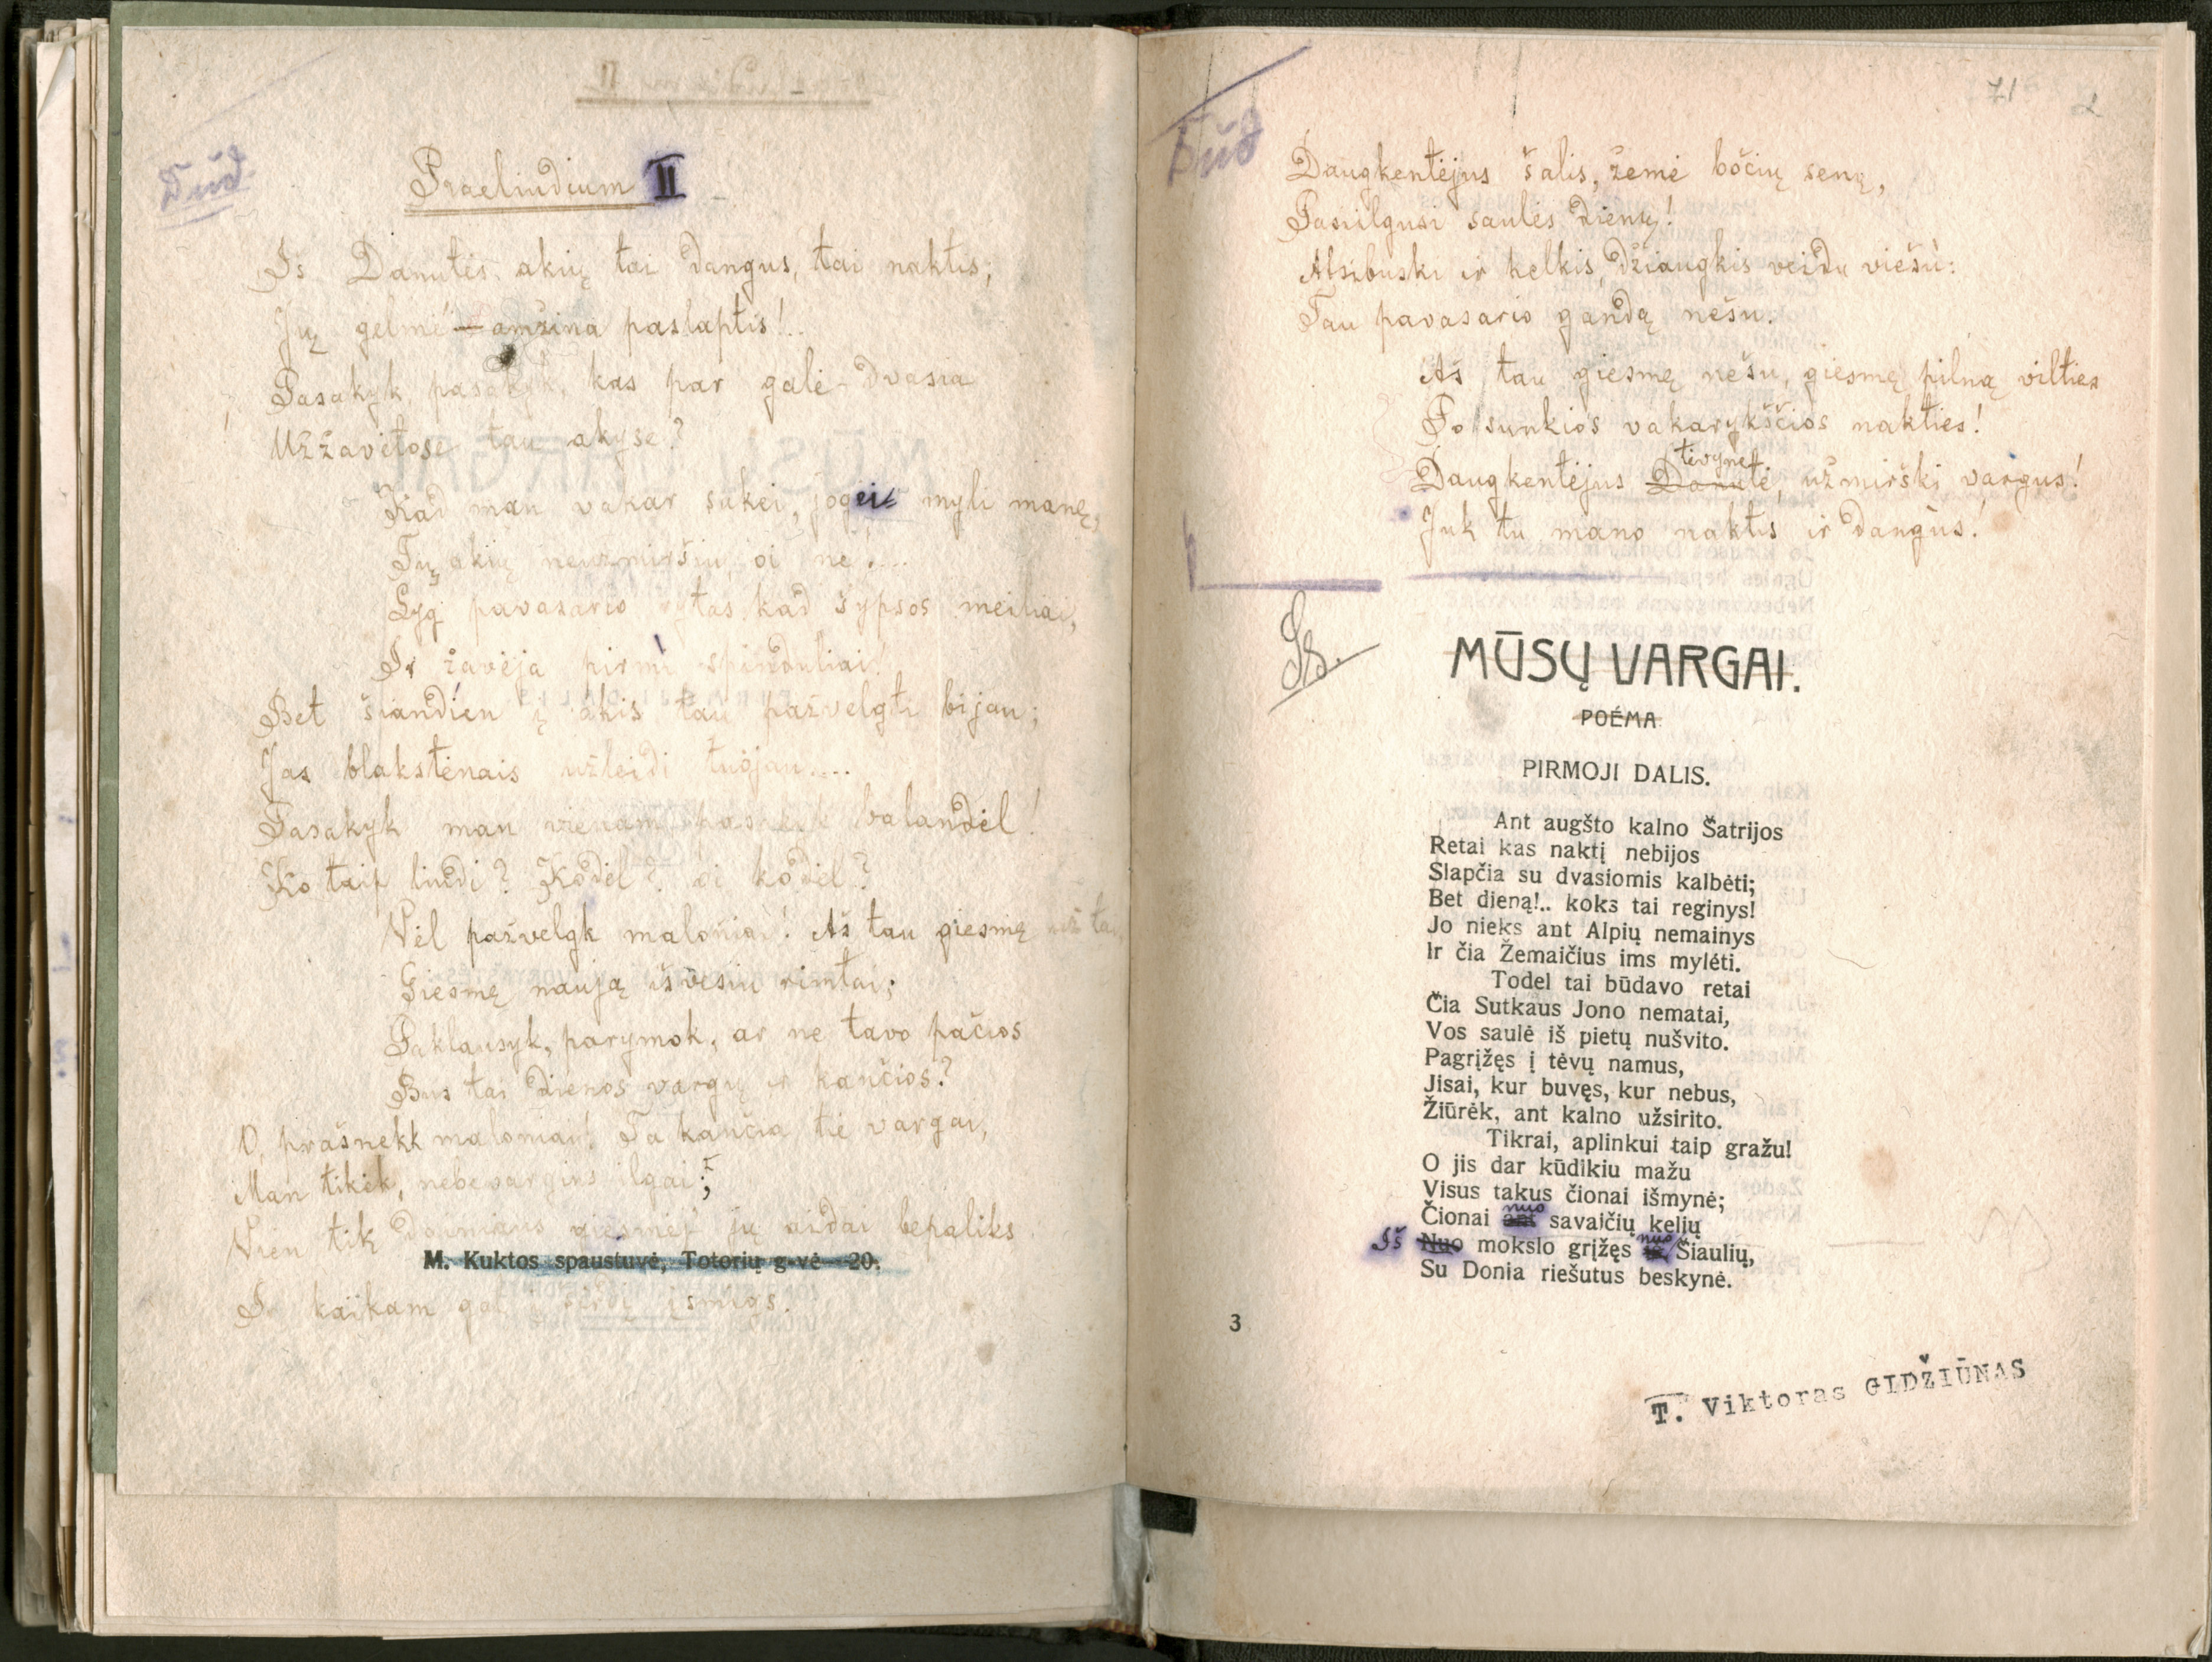 Dūd.
Praeliudium II
Iš Danutės akių tai dangus, tai naktis;
Jų gelmė — amžina paslaptis!..
Pasakyk, pasakyk, kas par galė-dvasia
Užžavėtose tau akyse?
Kad man vakar sakei, jogei myli manę,
Tų akių neužmiršiu, oi ne!...
Lyg pavasario rytas kad šypsos meiliai,
Ir žavėja pirmi spinduliai!
Bet šiandien į akis tau pažvelgti bijau;
Jas blakstėnais užleidi tuojau....
Pasakyk man vienam, pasakyk balandėl!
Ko taip liudi? Kodėl? oi kodėl?
Vėl pažvelgk maloniai! Aš tau giesmę už tai,
Giesmę naują išvesiu rimtai;
Paklausyk, parymok, ar ne tavo pačios
Bus tai dienos vargų ir kančios?
O, prašnekk maloniai! Ta kančia, tie vargai,
Man tikėk, nebevargins ilgai;
Vien tik giesmėj jų aidai bepaliks
M. Kuktos spaustuvė, Totorių g-vė 20.
Ir kaikam gal į širdį įsmigs.
71 2
Dūd
Daugkentėjus šalis, žemė bočių senų,
Pasiilgusi saulės dienų!
Atsibuski ir kelkis, džiaugkis veidu viešu:
Tau pavasario gandą nešu.
Aš tau giesmę nešu, giesmę pilną vilties
Po sunkios vakarykščios nakties!
tėvyne
Daugkentėjus Danutė, užmirški vargus!
Juk tu mano naktis ir dangus!
Is.
MŪSŲ VARGAI.
POÉMA
PIRMOJI DALIS.
Ant augšto kalno Šatrijos
Retai kas naktį nebijos
Slapčia su dvasiomis kalbėti;
Bet dieną!.. koks tai reginys!
Jo nieks ant Alpių nemainys
Ir čia Žemaičius ims mylėti.
Todel tai būdavo retai
Čia Sutkaus Jono nematai,
Vos saulė iš pietų nušvito.
Pagrįžęs į tėvų namus,
Jisai, kur buvęs, kur nebus,
Žiūrėk, ant kalno užsirito.
Tikrai, aplinkui taip gražu!
O jis dar kūdikiu mažu
Visus takus čionai išmynė;
nuo
Čionai ant savaičių kelių
nuo
Iš Nuo mokslo grįžęs Šiaulių,
Su Donia riešutus beskynė.
3
T. Viktoras GIDŽIŪNAS